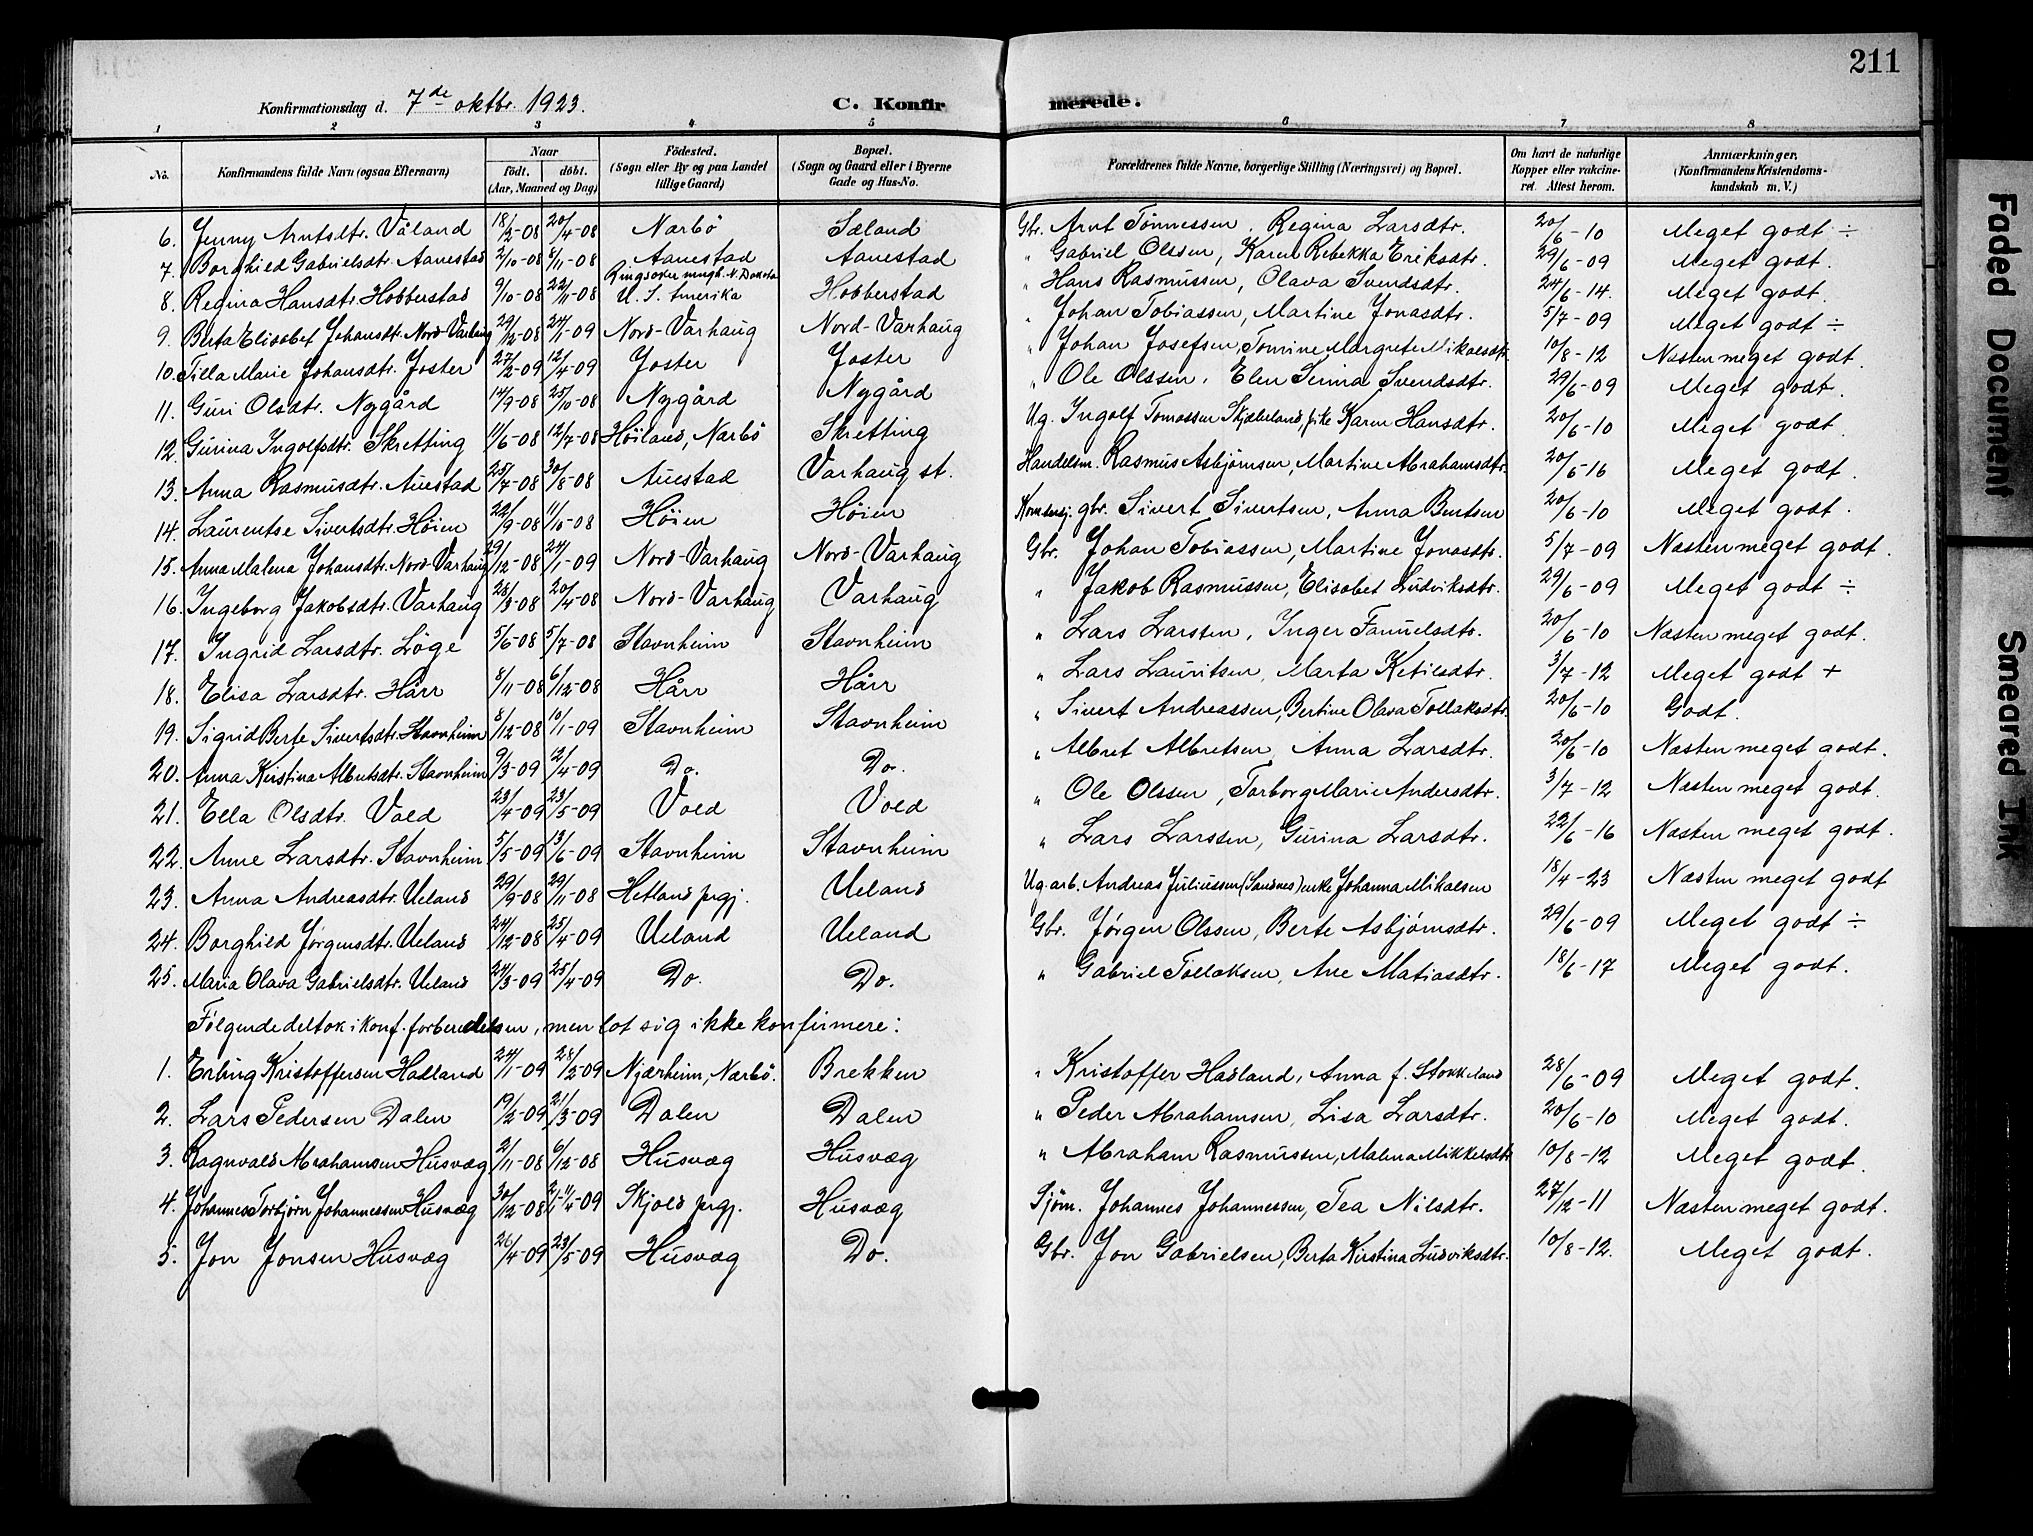 211
Konfirmationsdag d. 7de oktbr. 1923.
C. Konfirmerede.
1 2 3 4 5 6 7 8
No. | Konfirmandens fulde Navn (ogsaa Efternavn) | Naar födt. döbt. (Aar, Maaned og Dag) | Födested. (Sogn eller By og paa Landet tillige Gaard) | Bopæl. (Sogn og Gaard eller i Byerne Gade og Hus-No. | Forældrenes fulde Navne, borgerlige Stilling (Næringsvei) og Bopæl. | Om havt de naturlige Kopper eller vakcineret. Attest herom. | Anmærkninger. (Konfirmandens Kristendomskundskab m. V.)
6. Jenny Arntsdtr. Våland 18/2-08 20/4-08 Nærbö Sæland Gbr. Arnt Tönnessen, Regina Larsdtr. 20/6-10 Meget godt ÷
7. Borghild Gabrielsdtr. Aanestad 2/10-08 8/11-08 Aanestad Aanestad " Gabriel Olssen, Karen Rebekka Eriksdtr. 29/6-09 Meget godt.
8. Regina Hansdtr. Hobberstad 9/10-08 22/11-08 Ringsaker mngh. N. Dakota U. S. Amerika Hobberstad " Hans Rasmussen, Olava Svendsdtr. 24/6-14. Meget godt.
9. Berta Elisabet Johansdtr. Nord-Varhaug 29/12-08 24/1-09 Nord-Varhaug Nord-Varhaug " Johan Tobiassen, Martine Jonasdtr. 5/7-09 Meget godt ÷
10. Tilla Marie Johansdtr. Joster 27/2-09 12/4-09 Joster Joster " Johan Josefsen, Tomine Margrete Mikalsdtr. 10/8-12 Næsten meget godt.
11. Guri Olsdtr. Nygård 14/9-08 25/10-08 Nygård Nygård " Ole Olssen, Elen Serina Svendsdtr. 29/6-09 Meget godt.
12. Gurina Ingolfsdtr. Skretting 11/6-08 12/7-08 Höiland, Nærbö Skretting Ug. Ingolf Tomassen Skjæveland, pike Karen Hansdtr. 20/6-10 Meget godt.
13. Anna Rasmusdtr. Auestad 25/7-08 30/8-08 Auestad Varhaug st. Handelsm. Rasmus Asbjörnsen, Martine Abrahamsdtr. 20/6-16 Meget godt.
14. Laurentse Sivertsdtr. Höien 22/9-08 11/10-08 Höien Höien gbr. Sivert Sivertsen, Anna Bentsen 20/6-10 Meget godt.
15. Anna Malena Johansdtr. Nord-Varhaug 29/12-08 24/1-09 Nord-Varhaug Nord-Varhaug Gbr. Johan Tobiassen, Martine Jonasdtr. 5/7-09 Næsten meget godt.
16. Ingeborg Jakobsdtr. Varhaug 28/3-08 20/4-08 Nord-Varhaug Varhaug " Jakob Rasmussen, Elisabet Ludviksdtr. 29/6-09 Meget godt ÷
17. Ingrid Larsdtr. Löge 5/6-08 5/7-08 Stavnheim Stavnheim " Lars Larssen, Inger Fanuelsdtr. 20/6-10 Næsten meget godt.
18. Elisa Larsdtr. Hårr 8/11-08 6/12-08 Hårr Hårr " Lars Lauritsen, Marta Ketilsdtr. 3/7-12 Meget godt +
19. Sigrid Berte Sivertsdtr. Stavnheim 8/12-08 10/1-09 Stavnheim Stavnheim " Sivert Andreassen, Bertine Olava Tollaksdtr. 20/6-10 Godt.
20. Anna Kirstina Albretsdtr. Stavnheim 9/3-09 12/4-09 Do. Do. " Albret Albretsen, Anna Larsdtr. 20/6-10 Næsten meget godt.
21. Ella Olsdtr. Vold 23/4-09 23/5-09 Vold Vold " Ole Olssen, Torborg Marie Andersdtr. 3/7-12 Næsten meget godt.
22. Anne Larsdtr. Stavnheim 5/5-09 13/6-09 Stavnheim Stavnheim " Lars Larssen, Gurina Larsdtr. 22/6-16 Næsten meget godt.
23. Anna Andreasdtr. Ueland 29/9-08 29/11-08 Hetland prgj. Ueland Ug. arb. Andreas Juliussen (Sandnes) enke Johanna Mikalsen 18/4-23 Næsten meget godt
24. Borghild Jørgensdtr. Ueland 24/12-08 25/4-09 Ueland Ueland Gbr. Jørgen Olssen, Berte Asbjørnsdtr. 29/6-09 Meget godt ÷
25. Maria Olava Gabrielsdtr. Ueland 24/3-09 25/4-09 Do. Do. " Gabriel Tollaksen, Ane Matiasdtr. 18/6-17 Meget godt.
Følgende deltok i konf. forberedelsen, men lot sig ikke konfirmere:
1. Erling Kristoffersen Hadland 24/1-09 28/2-09 Njærheim, Nærbö. Brekken " Kristoffer Hadland, Anna f. Stokkeland 28/6-09 Meget godt.
2. Lars Pedersen Dalen 19/2-09 21/3-09 Dalen Dalen " Peder Abrahamsen, Lisa Larsdtr. 20/6-10 Meget godt.
3. Ragnvald Abrahamsen Husvæg 2/11-08 6/12-08 Husvæg Husvæg " Abraham Rasmussen, Malena Mikkelsdtr. 10/8-12 Meget godt.
4. Johannes Torbjörn Johannessen Husvæg 30/12-08 Skjold prgj. Husvæg Sjöm. Johannes Johannessen, Tea Nilsdtr. 27/12-11 Næsten meget godt.
5. Jon Jonsen Husvæg 26/4-09 23/5-09 Husvæg Do. Gbr. Jon Gabrielsen, Berta Kirstina Ludviksdtr. 10/8-12. Meget godt.
Faded Document
Smeared Ink